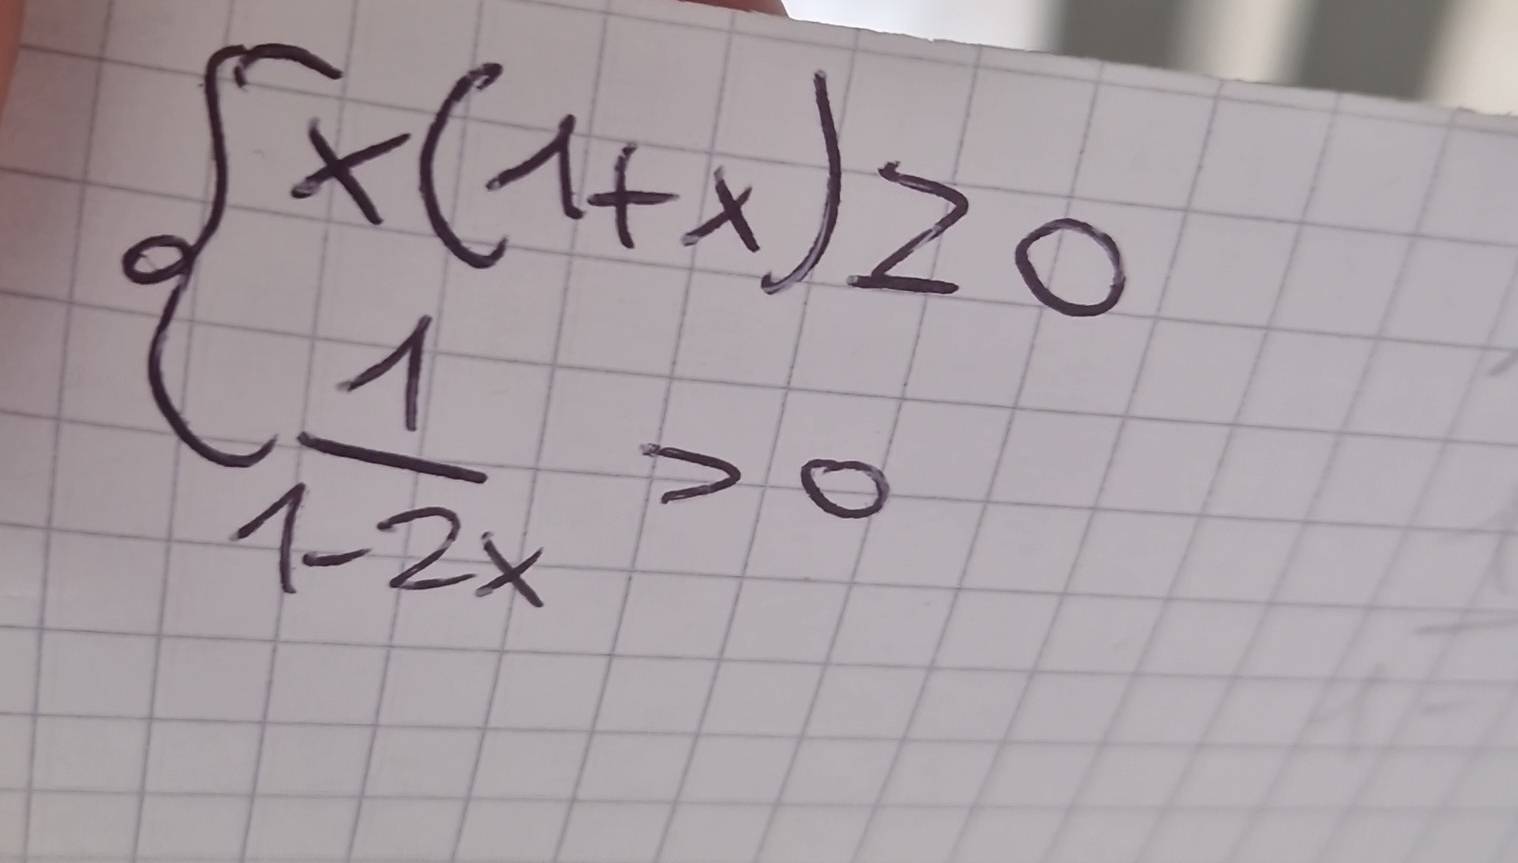 x(1+x)≥0
1
1-2x >0